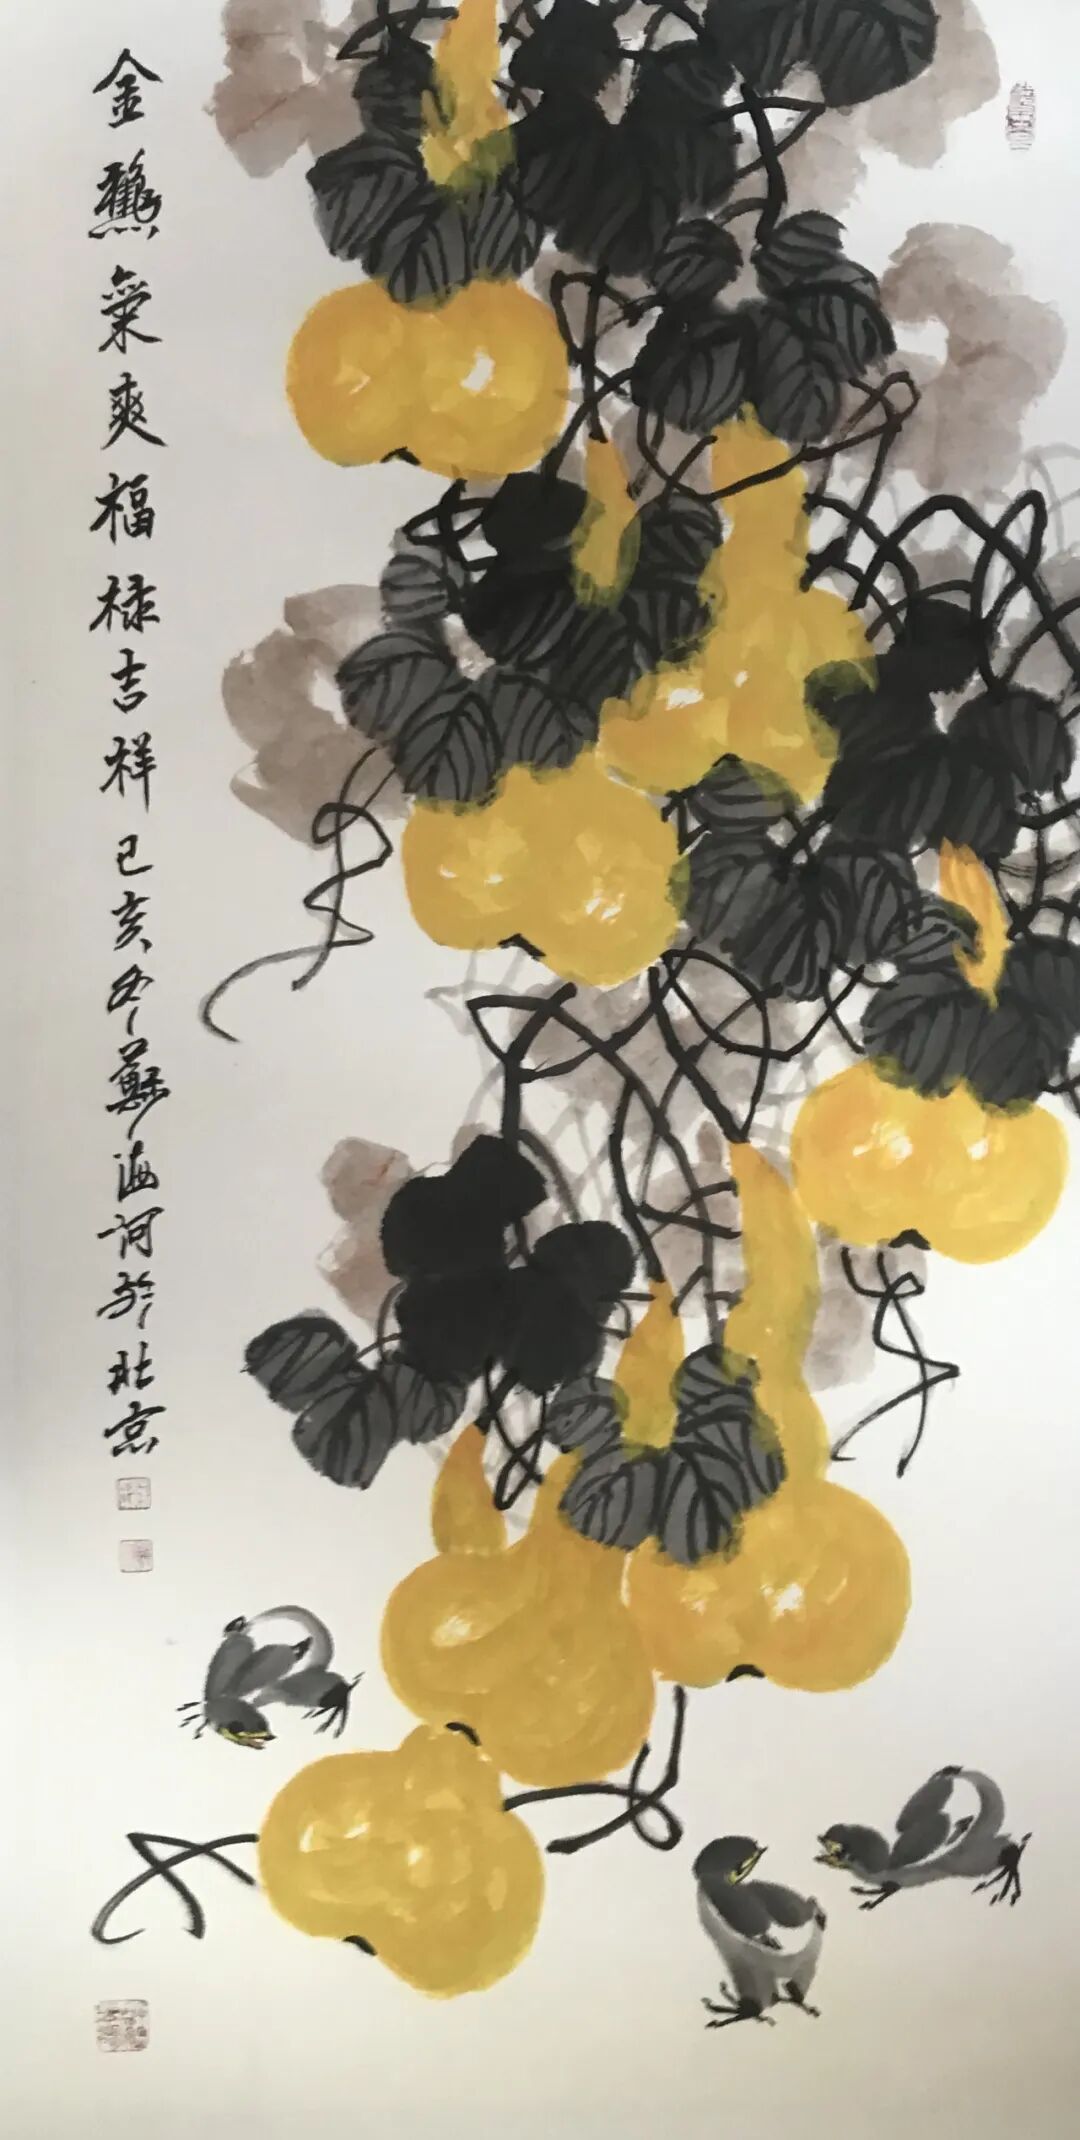 金龝氣爽福禄吉祥己亥冬蘇海河於北京